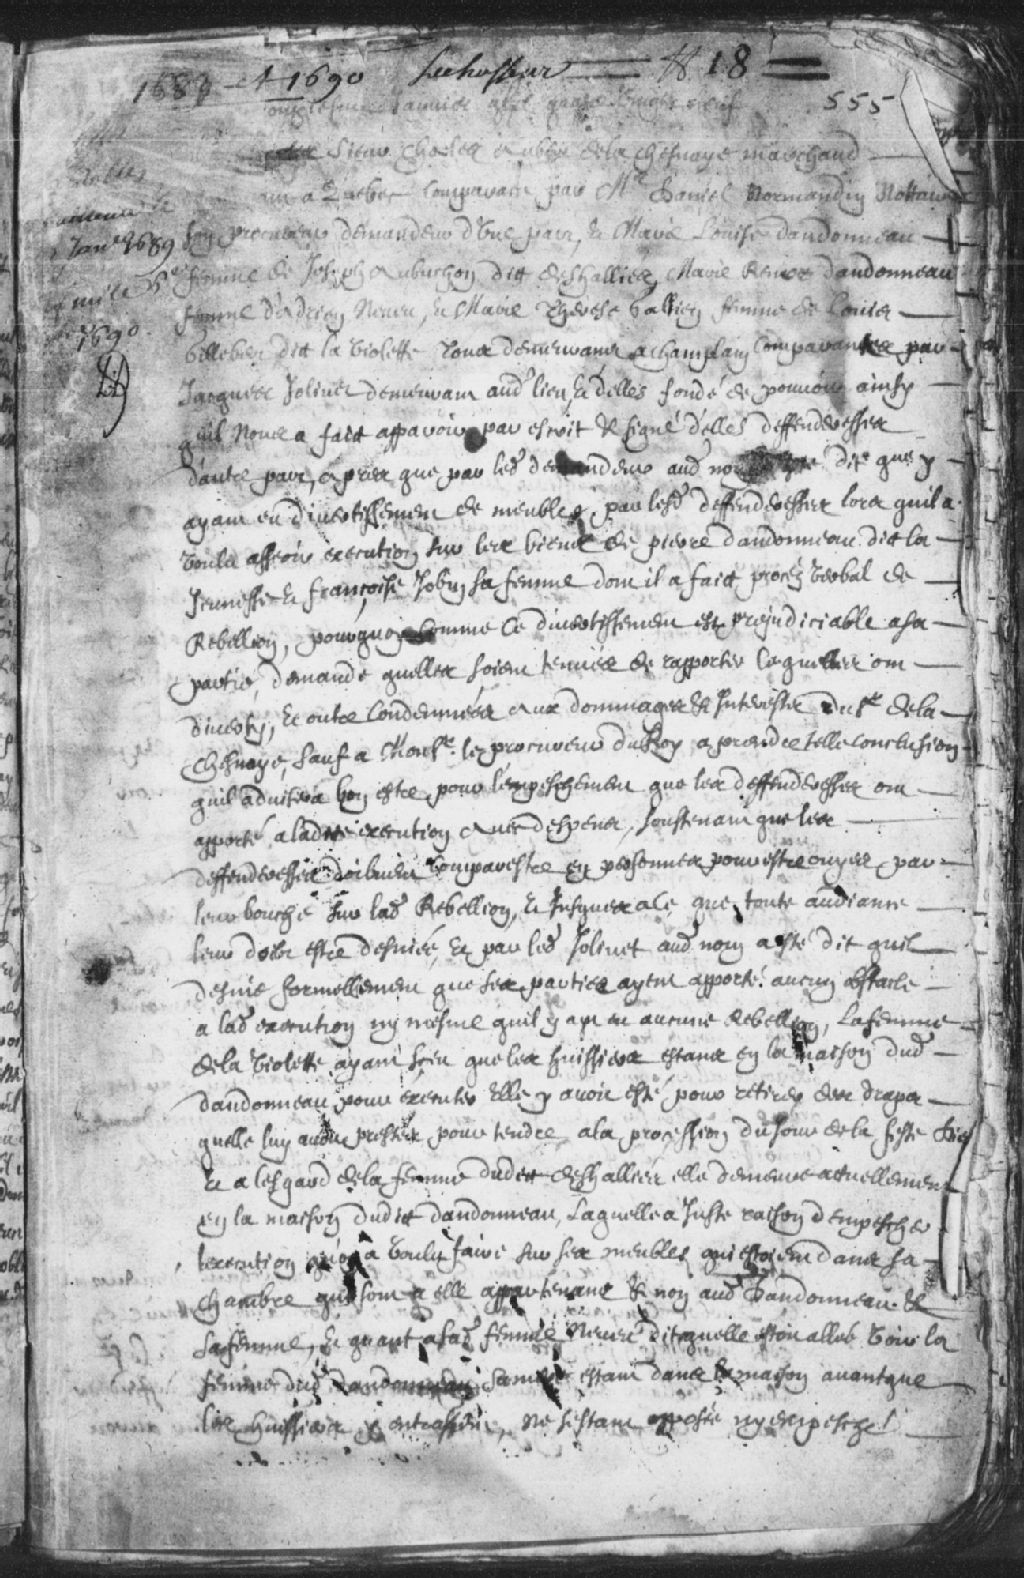 1689 et 1690
18
555
Janvier
Sieur Charles Aubert de la Chesnaye marchand
a Quebec comparant par Mre Daniel Normandin Nottaire
Janv. 1689
1690
son procureur demandeur d'Une part, & Marie Louise dandonneau
femme de Joseph Aubuchon dit deshalliers, Marie Renee dandonneau
femme d'Adrien Neveu, & Marie Therese femme de Louis
dit la Violette tous demeurans a champlain comparantes par
Jacques Jolivet demeurant aud. lieu & d'elles fondé de pouvoir ainsy
quil Nous a faict apparoir par escrit & signé d'elles deffenderesses
d'autre part, apres que par led. demandeur aud. nom a esté dit que y
ayant eu divertissement de meubles par lesd. deffenderesses lors quil a
voulu asseoir execution sur les biens de pierre dandonneau dit la
Jeunesse & françoise Jobin sa femme dont il a faict procez verbal de
Rebellion, pourquoy comme ce divertissement est prejudiciable a sa
partie, demande quelles soient tenuës de rapporter ce quelles ont
diverty, & outre condemnées aux dommages & Interestz dud. Sr de la
Chesnaye, sauf a Monsr. le procureur du Roy a prendre telle conclusion
quil advisera bon estre pour l'empeschement que les deffenderesses ont
apporté a ladite execution avec despens, soustenant que les
deffenderesses doibvent comparestre en personnes pour estre ouyes par
leur bouche sur lad. Rebellion, & Jusques a ce que toute audiance
leur doibt estre desniée, & par led. Jolivet aud. nom a esté dit quil
desnie formellement que ses parties ayent apporté aucun obstacle
a lad. execution ny mesme quil y ayt eu aucune Rebellion, La femme
de la Violette ayant sceu que les huissiers estans en la maison dud.
dandonneau pour executer Elle y auroit esté pour retirer des draps
quelle luy avoit prestez pour tendre a la procession du Jour de la feste
& a lesgard de la femme dudit deshalliers elle demeure actuellement
en la maison dudit dandonneau, Laquelle a Juste raison d'empescher
lexecution qu'on a voulu faire sur ses meubles qui estoient dans sa
chambre qui sont a elle appartenans & non aud. dandonneau &
sa femme, & quant a lad. femme Neveu dit quelle estoit allée voir la
femme dud. dandonneau estant dans la maison avant que
les huissiers y entrassent, ne sestant opposée ny empesché